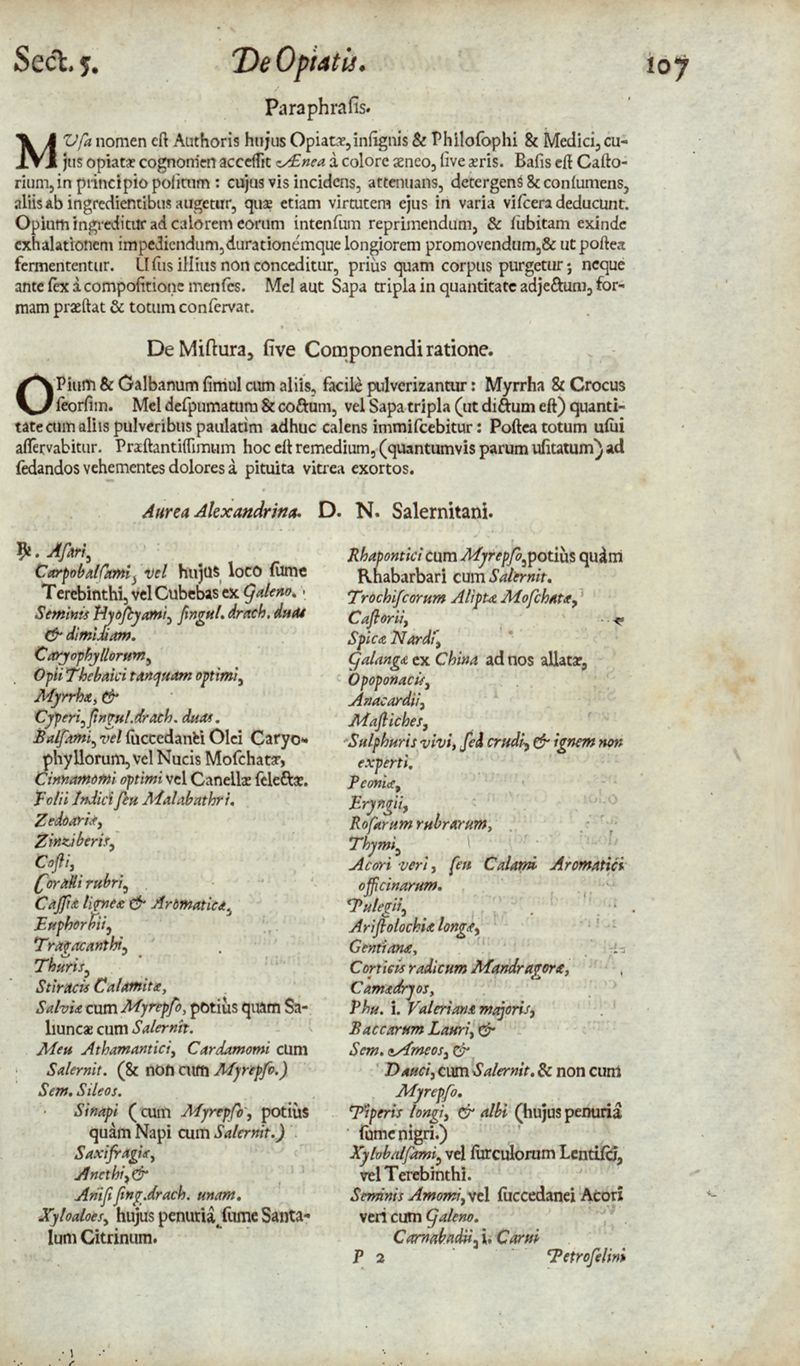 Sect. 5. De Opiatis. 107
Paraphrasis.
MUſa nomen eſt Authoris hujus Opiatæ, inſignis & Philoſophi & Medici, cu-
jus opiatæ cognomen acceſſit Ænea à colore æneo, ſive æris. Baſis eſt Caſto-
rium, in principio poſitum : cujus vis incidens, attenuans, detergens & conſumens,
aliis ab ingredientibus augetur, quæ etiam virtutem ejus in varia viſcera deducunt.
Opium ingreditur ad calorem eorum intenſum reprimendum, & ſubitam exinde
exhalationem impediendum, durationémque longiorem promovendum, & ut poſtea
fermententur. Uſus illius non conceditur, priùs quam corpus purgetur ; neque
ante ſex à compoſitione menſes. Mel aut Sapa tripla in quantitate adjectum, for-
mam præſtat & totum conſervat.
De Miſtura, ſive Componendi ratione.
OPium & Galbanum ſimul cum aliis, facilè pulverizantur : Myrrha & Crocus
ſeorſim. Mel deſpumatum & coctum, vel Sapa tripla (ut dictum eſt) quanti-
tate cum aliis pulveribus paulatim adhuc calens immiſcebitur : Poſtea totum uſui
aſſervabitur. Præſtantiſſimum hoc eſt remedium, (quantumvis parum uſitatum) ad
ſedandos vehementes dolores à pituita vitrea exortos.
Aurea Alexandrina. D. N. Salernitani.
℞. Aſari,
Carpobalſami, vel hujus loco ſume
Terebinthi, vel Cubebas ex Galeno.
Seminis Hyoſcyami, ſingul. drach. duas
& dimidiam.
Caryophyllorum,
Opii Thebaici tanquam optimi,
Myrrhæ, &
Cyperi, ſingul. drach. duas.
Balſami, vel ſuccedanei Olei Caryo-
phyllorum, vel Nucis Moſchatæ,
Cinnamomi optimi vel Canellæ ſelectæ.
Folii Indici ſeu Malabathri.
Zedoariæ,
Zinziberis,
Coſti,
Coralli rubri,
Caſſiæ ligneæ & Aromaticæ,
Euphorbii,
Tragacanthi,
Thuris,
Stiracis Calamitæ,
Salviæ cum Myrepſo, potiùs quàm Sa-
liuncæ cum Salernit.
Meu Athamantici, Cardamomi cum
Salernit. (& non cum Myrepſo.)
Sem. Sileos.
Sinapi (cum Myrepſo, potiùs
quàm Napi cum Salernit.)
Saxifragiæ,
Anethi, &
Aniſi ſing. drach. unam.
Xyloaloes, hujus penuriâ ſume Santa-
lum Citrinum.
Rhapontici cum Myrepſo, potiùs quàm
Rhabarbari cum Salernit.
Trochiſcorum Aliptæ Moſchatæ,
Caſtorii,
Spicæ Nardi,
Galangæ ex China ad nos allatæ,
Opoponacis,
Anacardii,
Maſtiches,
Sulphuris vivi, ſed crudi, & ignem non
experti.
Peoniæ,
Eryngii,
Roſarum rubrarum,
Thymi,
Acori veri, ſeu Calami Aromatici
officinarum.
Pulegii,
Ariſtolochiæ longæ,
Gentianæ,
Corticis radicum Mandragoræ,
Camædryos,
Phu. i. Valerianæ majoris,
Baccarum Lauri, &
Sem. Ameos, &
Dauci, cum Salernit. & non cum
Myrepſo.
Piperis longi, & albi (hujus penuriâ
ſume nigri.)
Xylobalſami, vel ſurculorum Lentiſci,
vel Terebinthi.
Seminis Amomi, vel ſuccedanei Acori
veri cum Galeno.
Carnabadii, i. Carui
P 2 Petroſelini